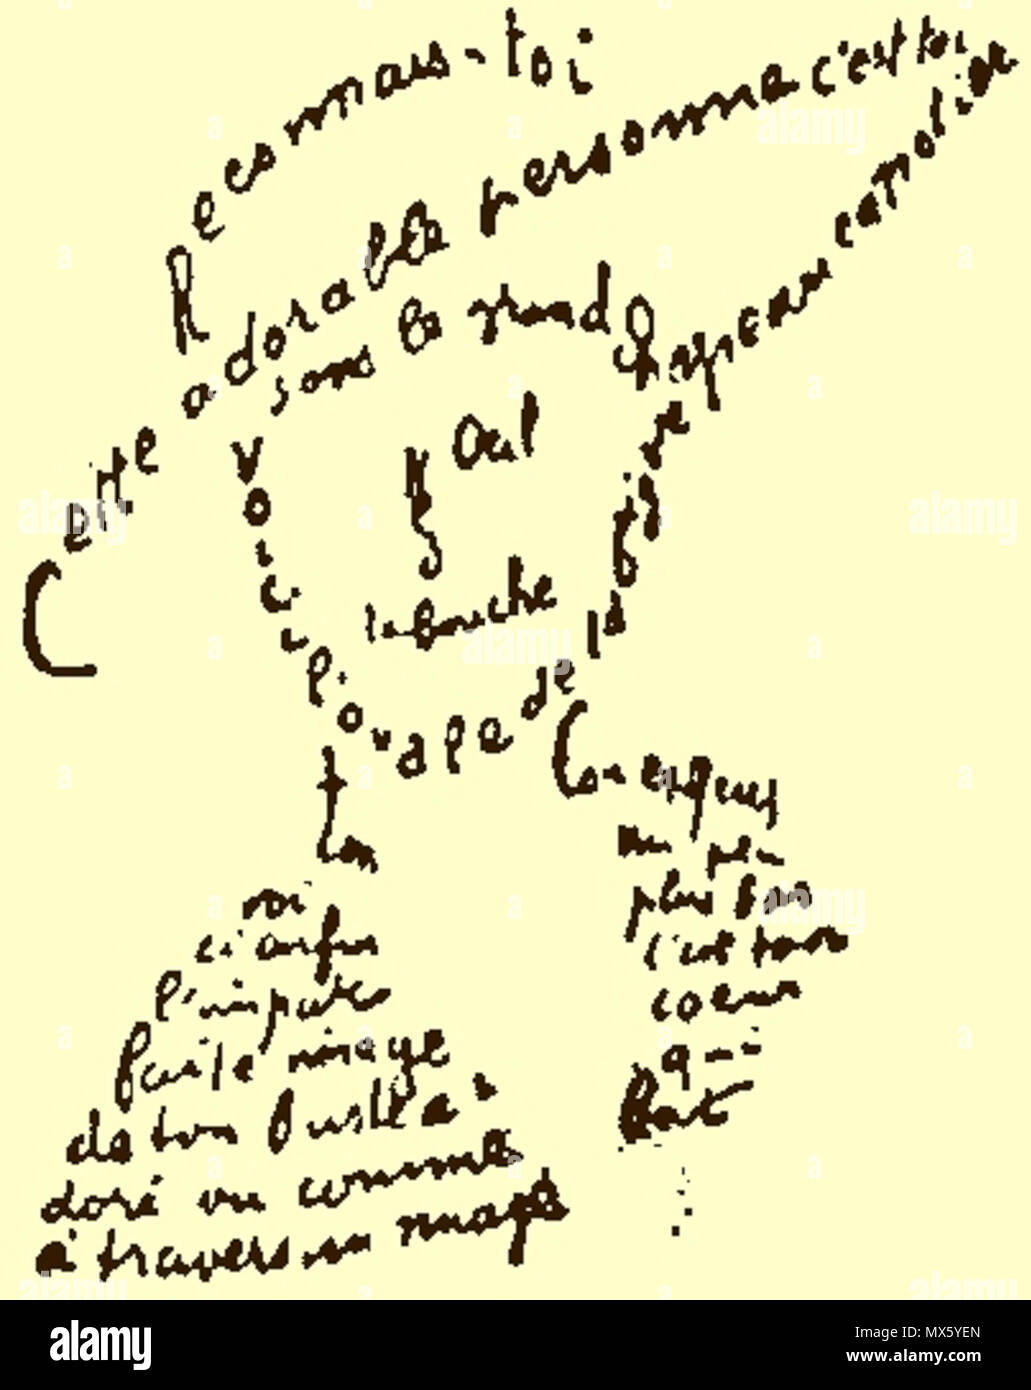 Reconnais-toi
Cette adorable personne c'est toi
sous le grand chapeau canotier
Œil
Nez
la bouche
Voici l'ovale de ta figure
ton
cou exquis
voi
ci enfin
l'imparfaite image
de ton buste a
doré vu comme
à travers un nuage
un peu
plus bas
c'est ton
cœur
qui
bat
alamy
Image ID: MX5YEN
www.alamy.com